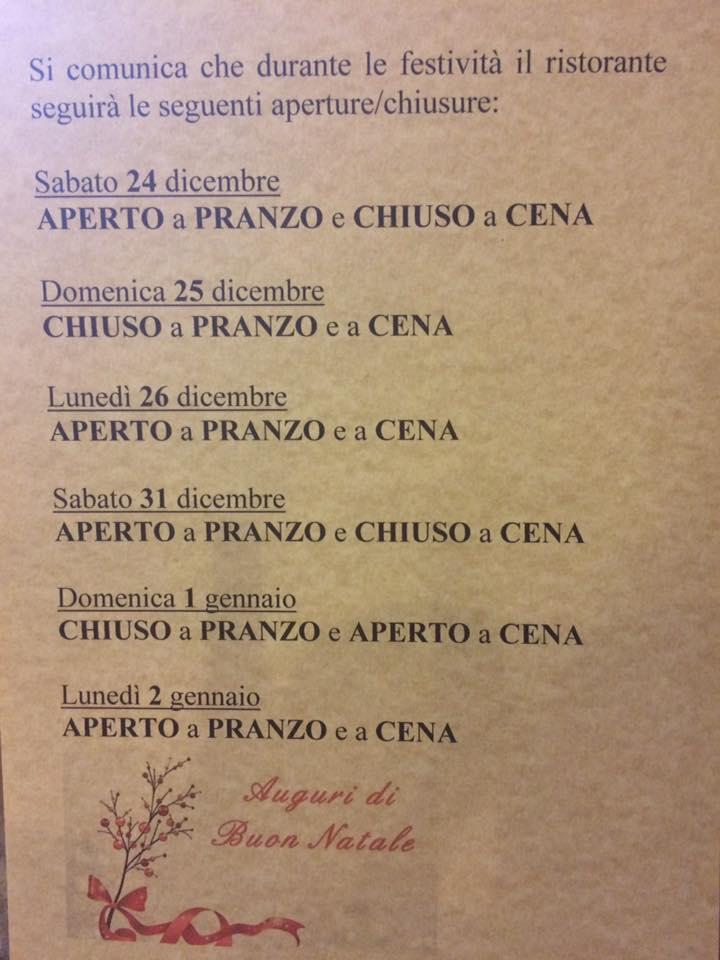 Si comunica che durante le festività il ristorante
seguirà le seguenti aperture/chiusure:
Sabato 24 dicembre
APERTO a PRANZO e CHIUSO a CENA
Domenica 25 dicembre
CHIUSO a PRANZO e a CENA
Lunedì 26 dicembre
APERTO a PRANZO e a CENA
Sabato 31 dicembre
APERTO a PRANZO e CHIUSO a CENA
Domenica 1 gennaio
CHIUSO a PRANZO e APERTO a CENA
Lunedì 2 gennaio
APERTO a PRANZO e a CENA
Auguri di
Buon Natale